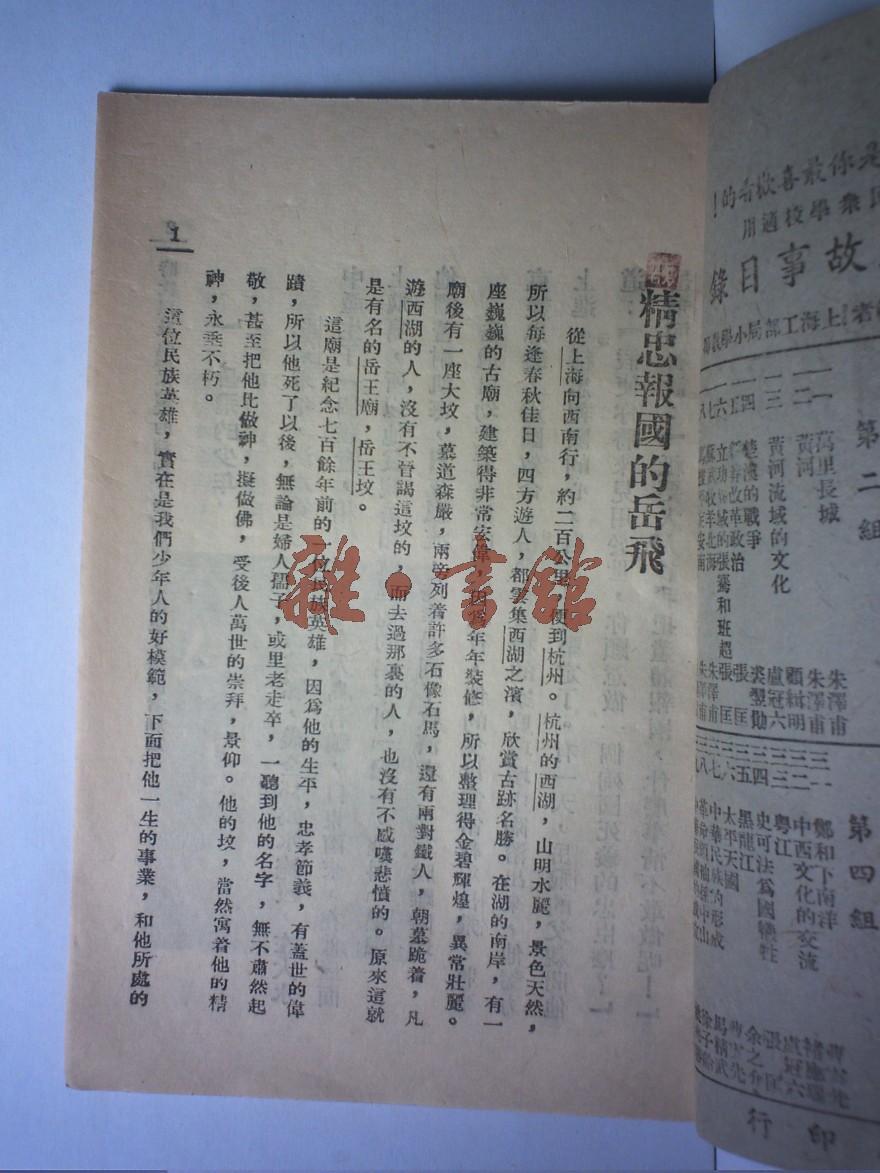 是你最喜歡看的！
民衆學校適用
故事目錄
上海工部局小學
第二組
一一 萬里長城 朱澤甫
一二 黃河 朱澤甫
一三 黃河流域的文化 顧緝明
一四 楚漢的戰爭 盧冠六
一六 立功西域的張騫和班超 張匡
第四組
三一 鄭和下南洋
三二 中西文化的交流
三三 粵江 盧冠六
三四 史可法爲國犧牲 張匡
三五 黑龍江 余之介
三六 太平天國
三七 中華民族的形成 馬精武
印行
精忠報國的岳飛
從上海向西南行，約二百公里，便到杭州。杭州的西湖，山明水麗，景色天然，
所以每逢春秋佳日，四方遊人，都雲集西湖之濱，欣賞古跡名勝。在湖的南岸，有一
座巍巍的古廟，建築得非常宏偉，因爲年年裝修，所以整理得金碧輝煌，異常壯麗。
廟後有一座大坟，墓道森嚴，兩旁列着許多石像石馬，還有兩對鐵人，朝墓跪着，凡
遊西湖的人，沒有不管謁這坟的，而去過那裏的人，也沒有不感嘆悲憤的。原來這就
是有名的岳王廟，岳王坟。
這廟是紀念七百餘年前的一位民族英雄，因爲他的生平，忠孝節義，有蓋世的偉
蹟，所以他死了以後，無論是婦人孺子，或里老走卒，一聽到他的名字，無不肅然起
敬，甚至把他比做神，擬做佛，受後人萬世的崇拜，景仰。他的坟，當然寓着他的精
神，永垂不朽。
這位民族英雄，實在是我們少年人的好模範，下面把他一生的事業，和他所處的
1
雜·書館